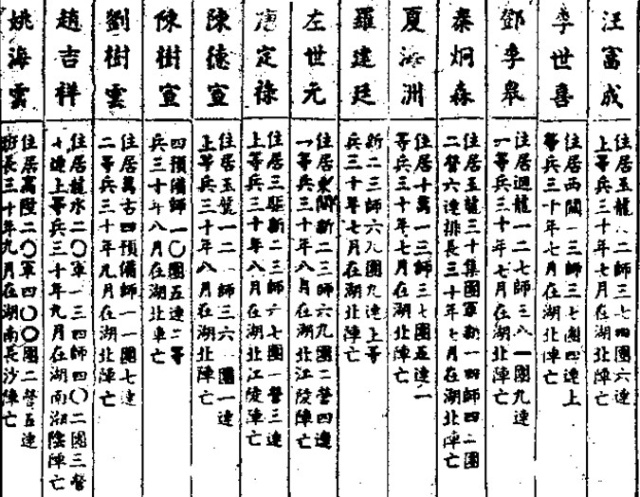 汪富成
住居玉龍八二師三七四團六連
上等兵三十年七月在湖北陣亡
李世喜
住居西關一三師三七團四連上
等兵三十年七月在湖北陣亡
鄧李皋
住居迴龍一二七師三八一團九連
一等兵三十年七月在湖北陣亡
秦炯森
住居玉龍三十集團軍新一四師四二團
二營六連排長三十年七月在湖北陣亡
夏 洲
住居十萬一三師三七團五連一
等兵三十年七月在湖北陣亡
羅建廷
新二三師六九團九連上等
兵三十年七月在湖北陣亡
左世元
住居東關新二三師六九團二營四連
一等兵三十年八月在湖北江陵陣亡
唐定祿
住居三驅新二三師六七團一營三連
上等兵三十年八月在湖北江陵陣亡
陳德宣
住居玉龍一二 師三六 團一連
上等兵三十年八月在湖北陣亡
陳樹宣
四預備師一〇團五連二等
兵三十年八月在湖北陣亡
劉樹雲
住居萬古四預備師一一團七連
二等兵三十年九月在湖北陣亡
趙吉祥
住居龍水二〇軍一三四師四〇二團三營
七連上等兵三十年九月在湖南湘陰陣亡
姚海雲
住居高陞二〇軍四〇〇團二營五連
班長三十年九月在湖南長沙陣亡